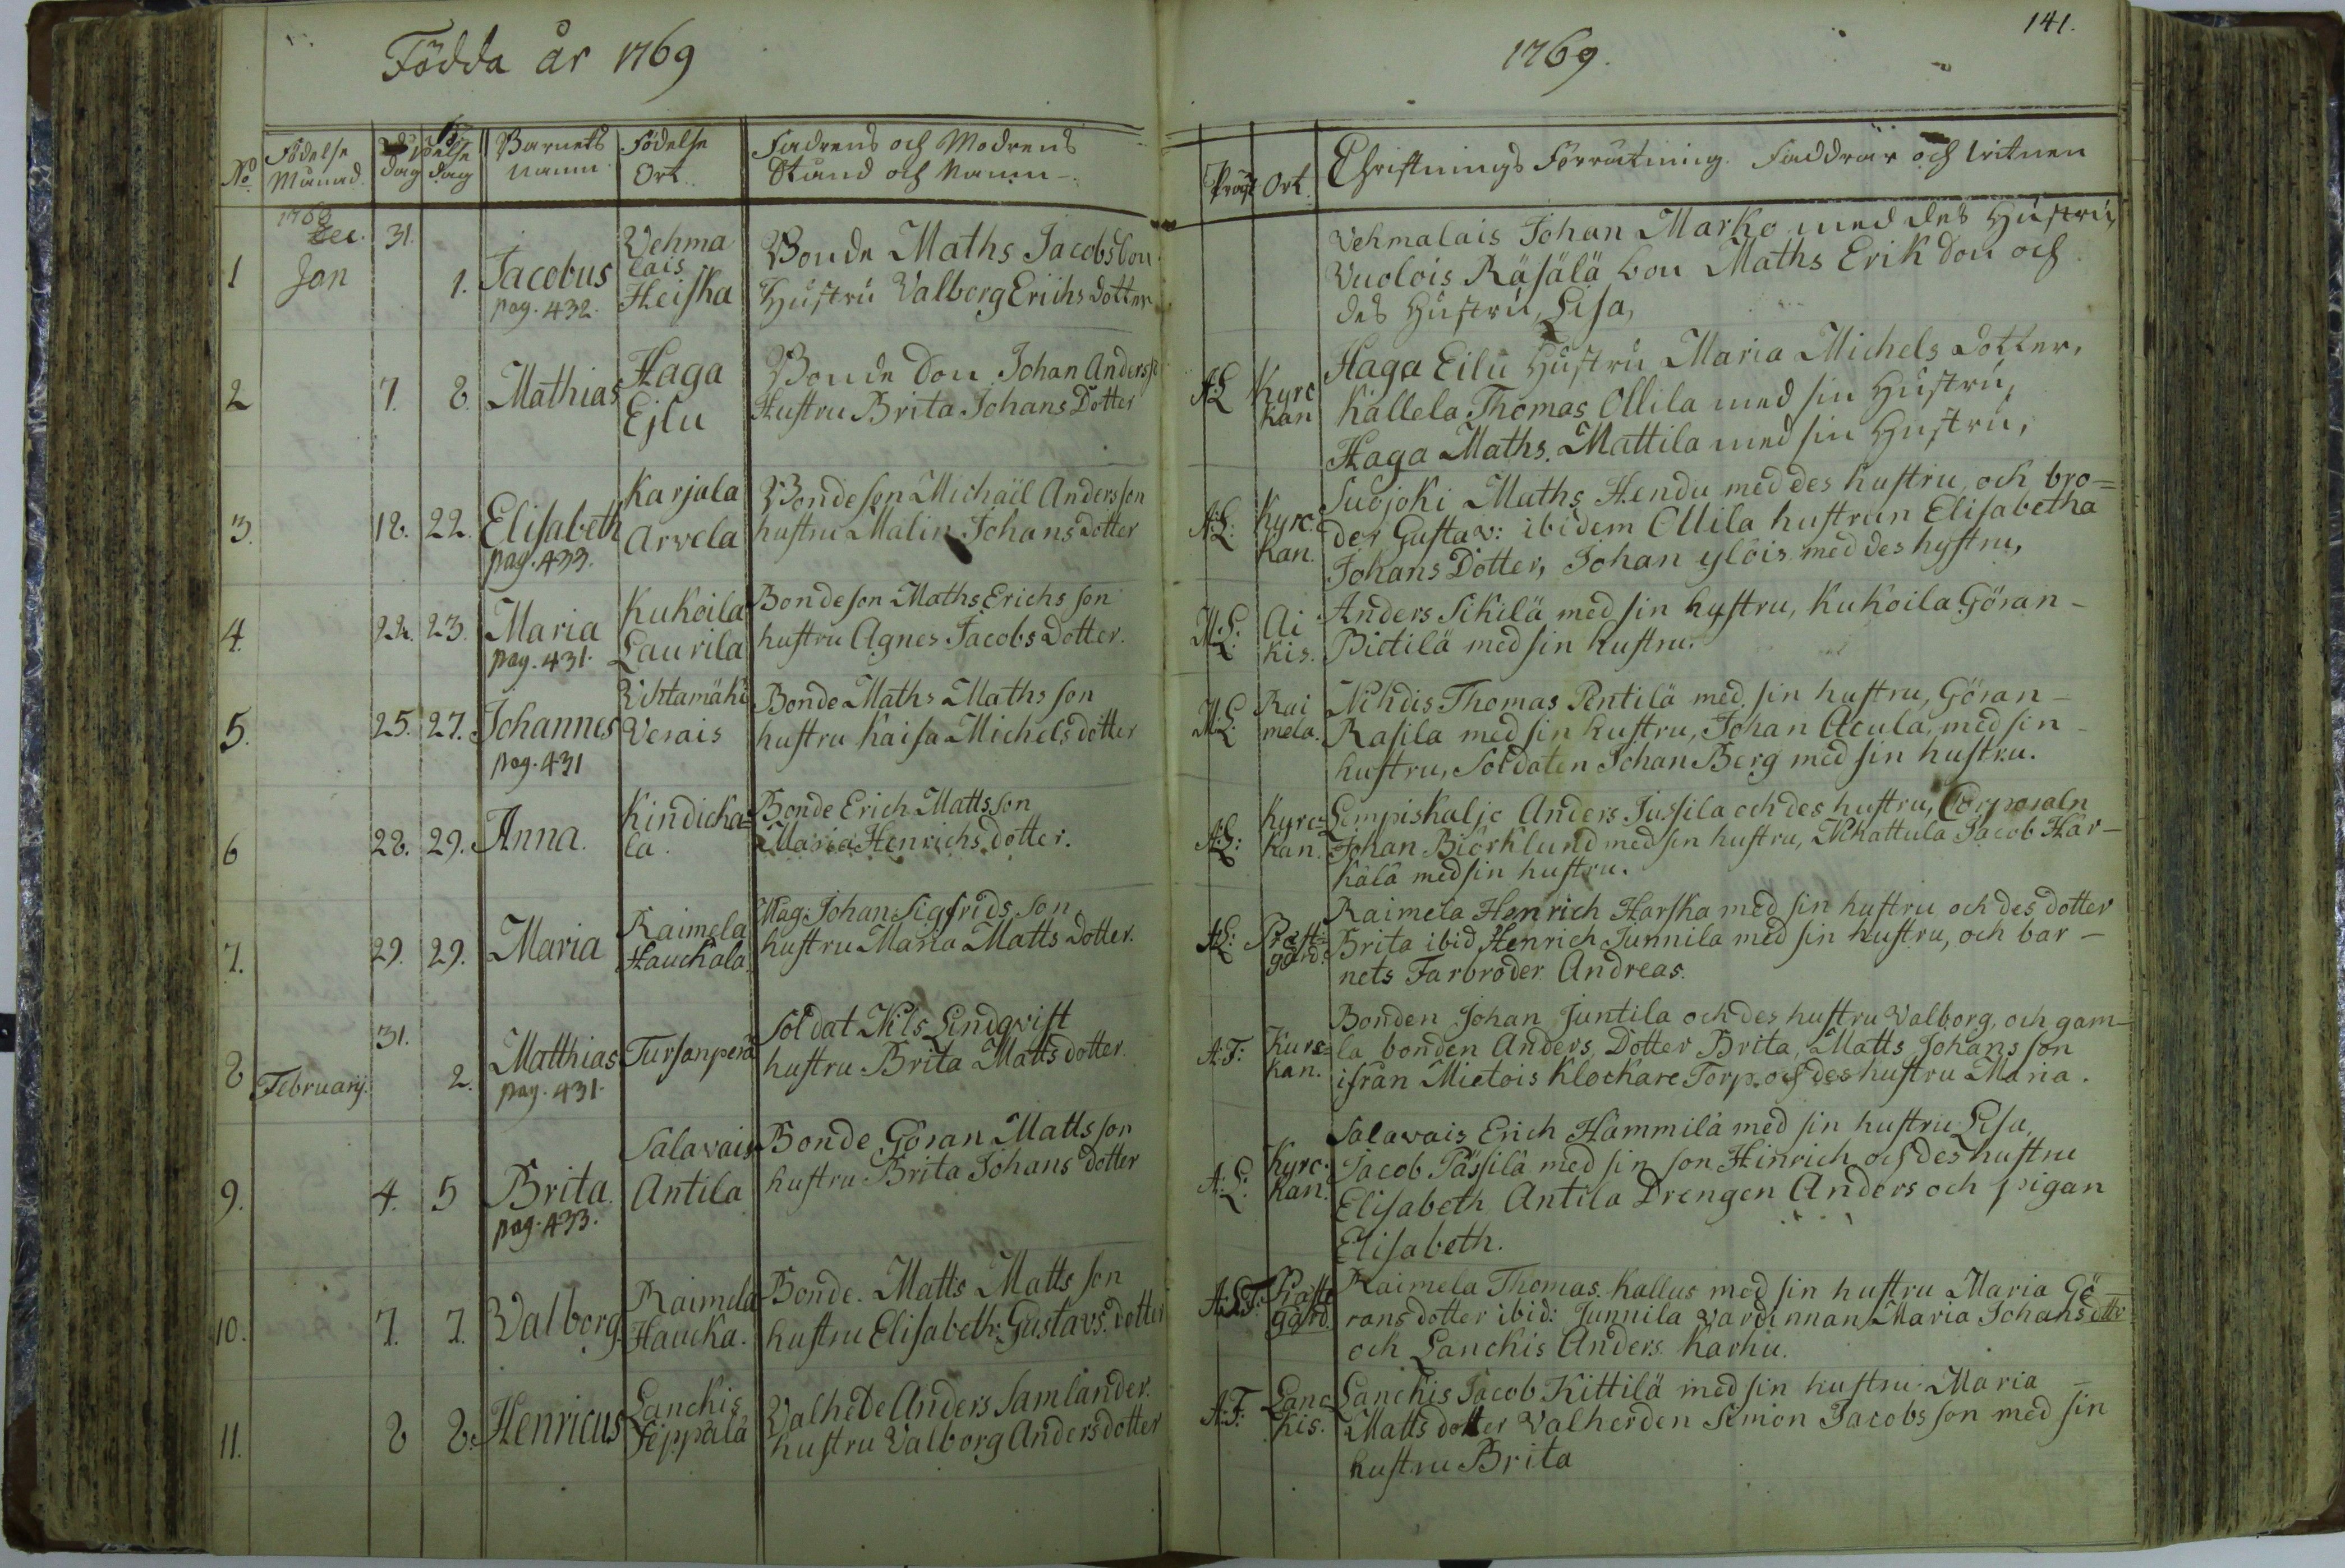 Födda år 1769
1769.
141.
No
Födelse Månad
dag
Döpelse dag
Barnets namn
Födelse Ort.
Fadrens och Modrens Stånd och Namn
Präst
Ort.
Christnings Förrätning. Faddrar och witnen
1768
Dec. 31.
1 Jan 1. Jacobus
pag. 432.
Vehma
lais
Heiska
Bonde Maths Jacobsson
Hustru Valborg Erichs dotter
Vehmalais Johan Marko med des Hustru,
Vuolois Räsälä bon Maths Erik son och
des Hustru, Lisa,
2 7. 8. Mathias
Haga
Ejlu
Bonde Son Johan Anderss
Hustru Brita Johans Dotter
A:L
Kyrc
kan
Haga Eilu Hustru Maria Michels dotter,
Kallela Thomas Ollila med sin Hustru,
Haga Maths Mattila med sin Hustru,
3. 18. 22. Elisabeth
pag. 433.
Karjala
Arvela
Bondeson Michaël Andersson
hustru Malin Johans dotter
A:L:
Kyrc.
kan.
Suojoki Maths Hendu med des hustru, och bro=
der Gustav: ibidem Ollila hustrun Elisabetha
Johans Dotter, Johan ylöis med des hystru,
4. 22. 23. Maria
pag. 431.
Kukoila
Laurila
Bondeson Maths Erichs son
hustru Agnes Jacobs Dotter.
M:L:
Ai
kis.
Anders Sikilä med sin hystru, Kukoila Göran-
Pietilä med sin hustru.
5. 25. 27. Johannes
pag. 431
Vihtamäki
Verais
Bonde Maths Maths son
hustru Kaisa Michels dotter
M:L:
Rai
mela.
Nihdis Thomas Pentilä med sin hustru, Göran-
Rasila med sin hustru, Johan Acula, med sin-
hustru, Soldaten Johan Berg med sin hustru.
6 28. 29. Anna.
Kindicka=
la.
Bonde Erich Matts son
Maria Henrichs dotter.
A:L:
Kyrc=
kan.
Lempiskaljo Anders Jussila och des hustru, Corporaln
Johan Biörklund med sin hustru, Nihattula Jacob Här-
kälä med sin hustru.
7. 29. 29. Maria
Raimela
Hauckala
Mag: Johan Sigfrids son
hustru Maria Matts dotter.
A:L:
Präst=
gård:
Raimela Henrich Harska med sin hustru och des dotter
Brita ibid Henrich Junnila med sin hustru, och bar-
nets Farbroder Andreas.
31.
8 February. 2. Matthias
pag. 431.
Tursanperä
Soldat Nils Lindqvist
hustru Brita Matts dotter.
A:F:
Kyrc=
kan.
Bonden Johan Juntila och des hustru Valborg, och gam-
la bonden Anders, Dotter Brita, Matts Johans son
ifrån Mietois Klockare Torp. och des hustru Maria.
9. 4. 5 Brita.
pag. 433.
Salavais
Antila
Bonde Göran Matts son
hustru Brita Johans dotter
A:L:
Kyrc.
kan.
Salavais Erich Hämmilä med sin hustru Lisa,
Jacob Pässilä med sin son Hinrich och des hustru
Elisabeth. Antila Drengen Anders och pigan
Elisabeth.
10. 7. 7. Valborg
Raimela
Haucka.
Bonde. Matts Matts son
hustru Elisabeth: Gustavs. dotter
Präste
gård.
Raimela Thomas Kallus med sin hustru Maria Gö-
rans dotter ibid: Junnila värdinnan Maria Johans dtt
och Lanckis Anders Karhu.
11. 8 8. Henricus
Lanckis
Seppälä
Valhede Anders Samlander.
hustru Valborg Anders dotter
A:F:
Lanc
kis.
Lanckis Jacob Kittilä med sin hustru Maria-
Matts dotter Valherden Simon Jacobs son med sin
hustru Brita